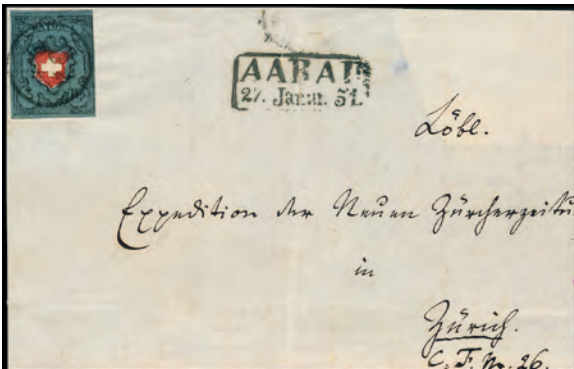 AARAU
27. Janur. 51.
Löbl.
Expedition der Neuen Zürcherzeitu
in
Zürich.
C. F. No. 26.